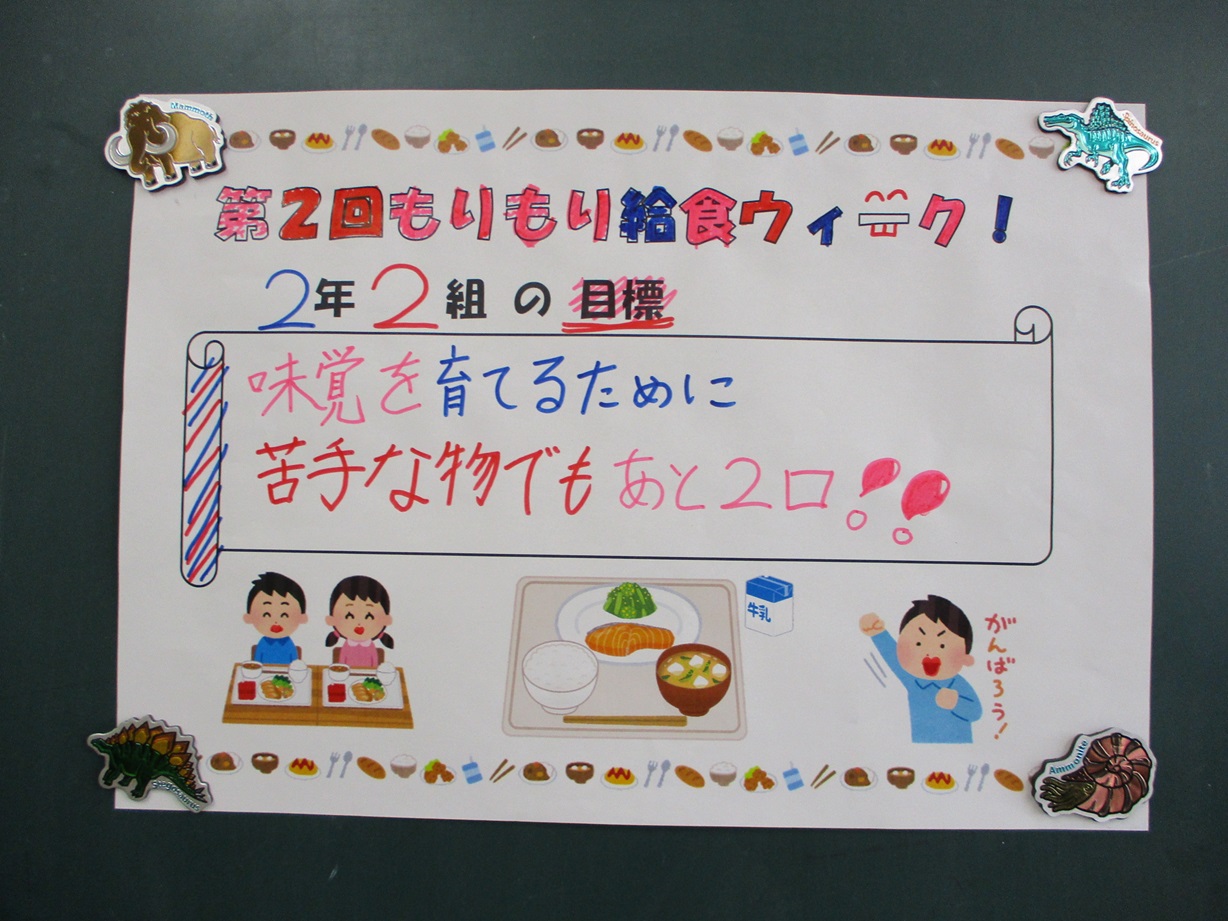 Mammoth
Spinosaurus
第2回もりもり給食ウィーク!
2年2組の目標
味覚を育てるために
苦手な物でもあと2口!!
牛乳
がんばろう!
Stegosaurus
Ammonite